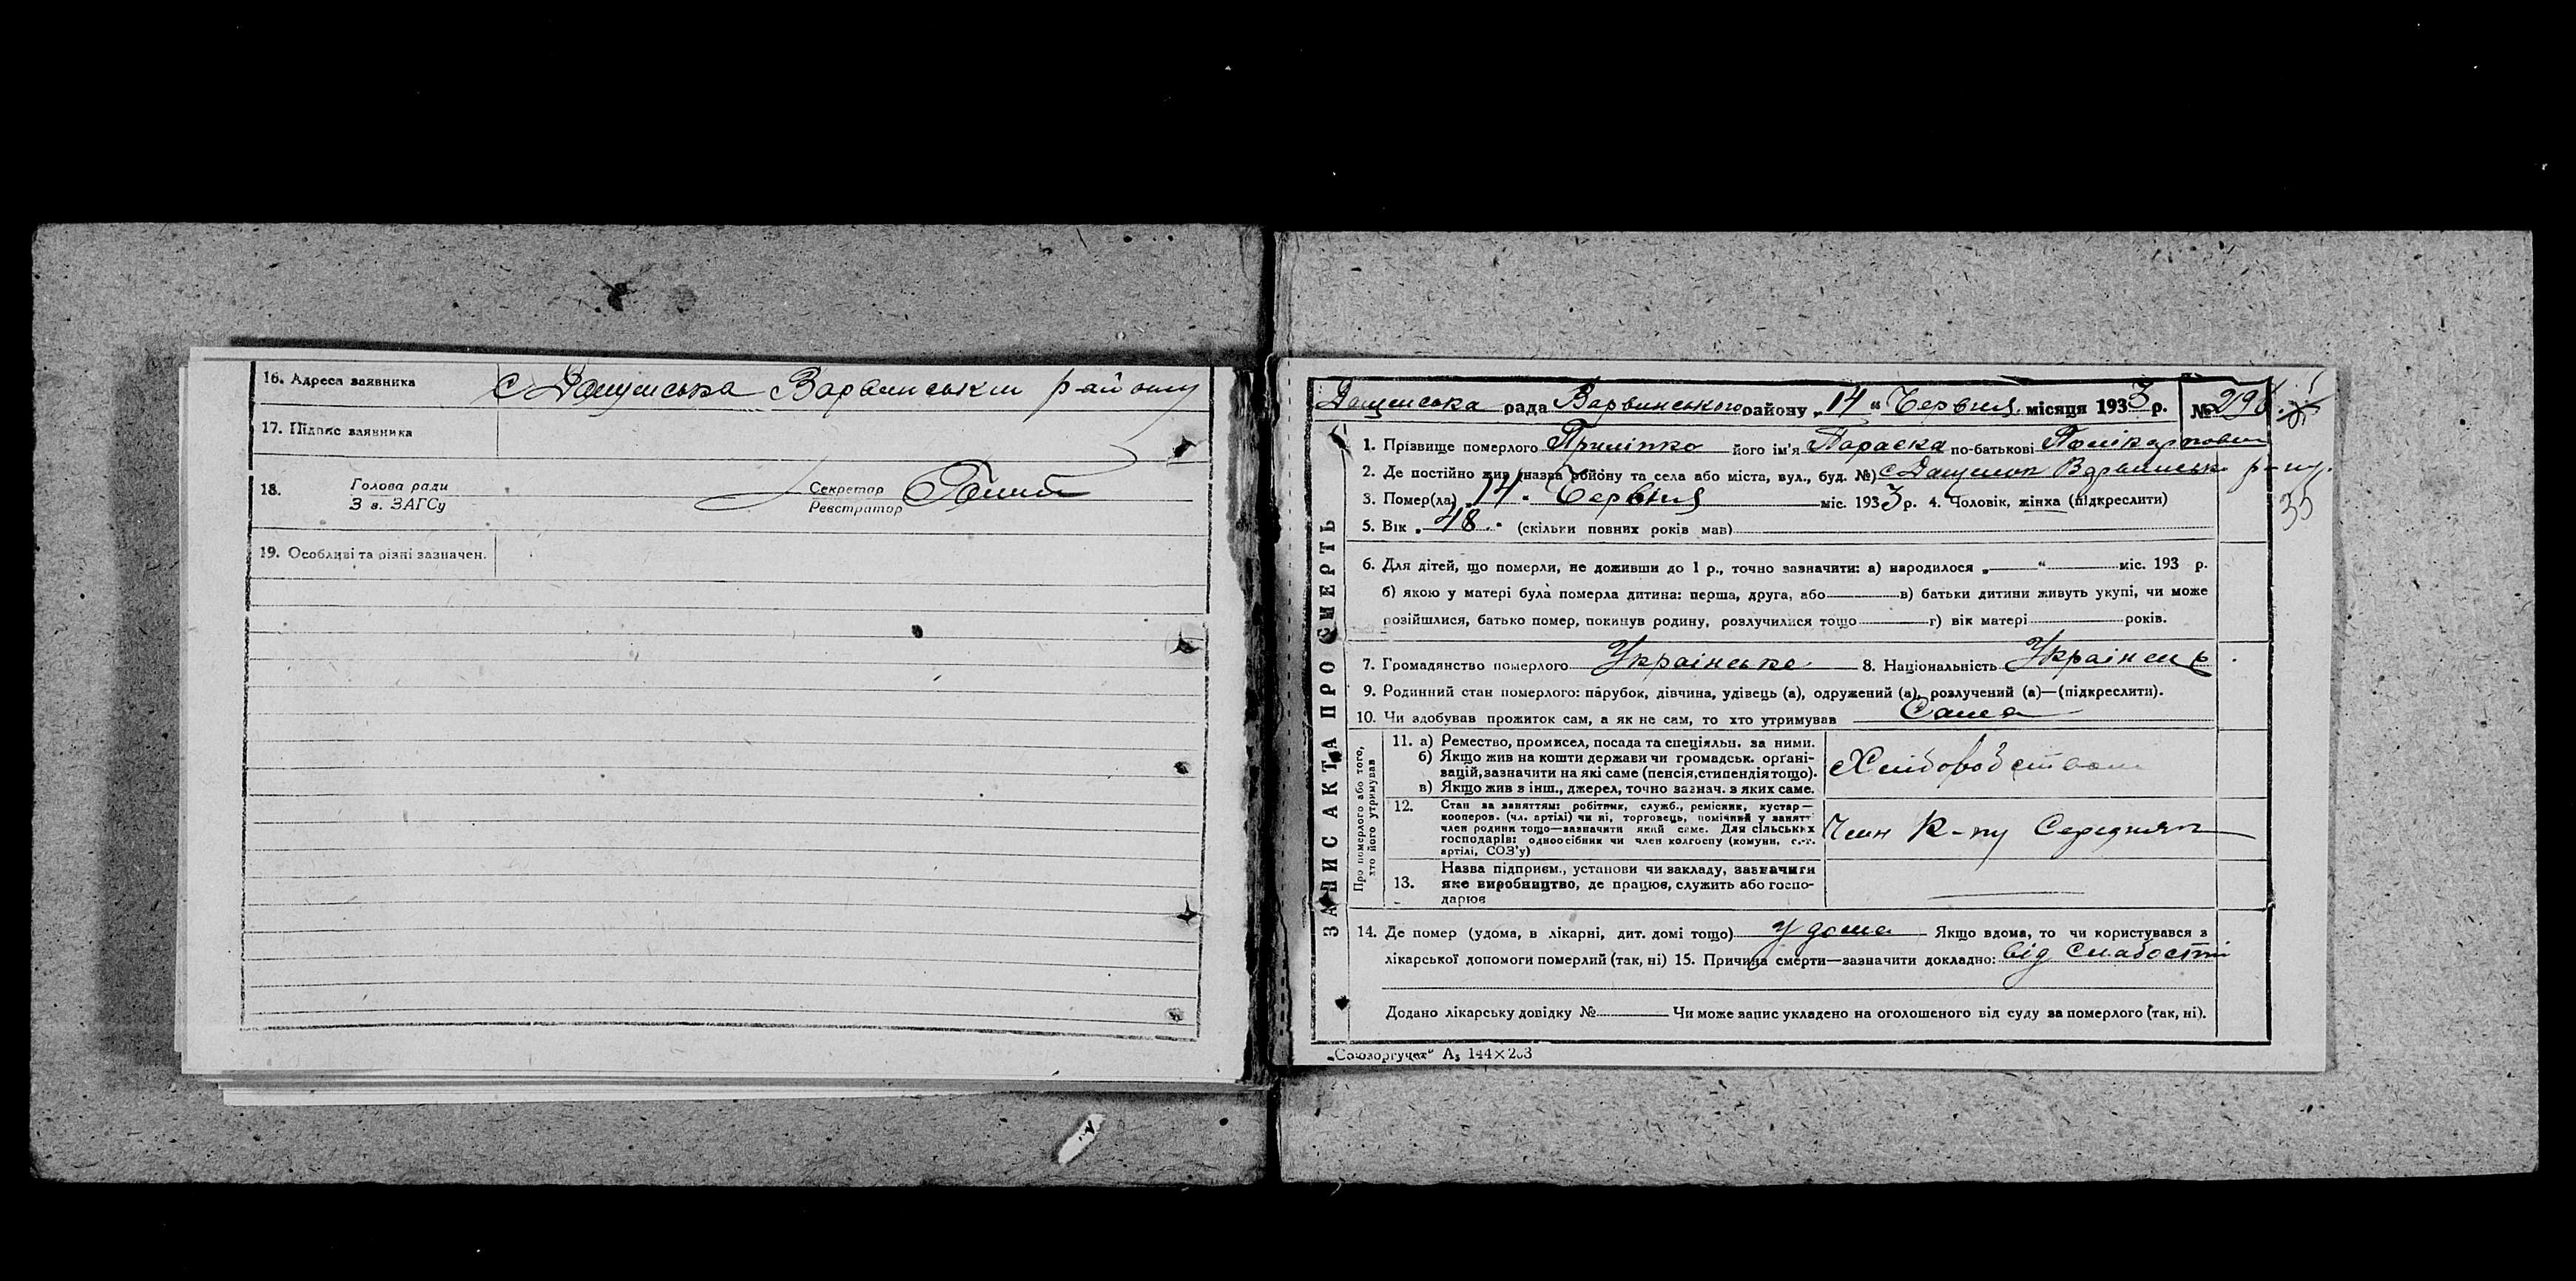 16. Адреса заявника с Дащенська Варвинський району
17. Підпис заявника
18. Голова ради Секретар
З в. ЗАГСу Реєстратор
19. Особливі та різні зазначен.
Дащенська рада Варвинського району „14“ Червня місяця 1933 р. № 298
1. Прізвище померлого Приліпко його ім'я Параска по-батькові
2. Де постійно жив (назва району та села або міста, вул., буд. №) с Дащенки Варвинськ р-ну.
3. Помер(ла) „14“ Червня міс. 1933 р. 4. Чоловік, жінка (підкреслити)
35
5. Вік „48“ (скільки повних років мав)
6. Для дітей, що померли, не доживши до 1 р., точно зазначити: а) народилося „ “ міс. 193 р.
б) якою у матері була померла дитина: перша, друга, або в) батьки дитини живуть укупі, чи може
розійшлися, батько помер, покинув родину, розлучилися тощо г) вік матері років.
7. Громадянство померлого Українське 8. Національність Українець
9. Родинний стан померлого: парубок, дівчина, удівець (а), одружений (а), розлучений (а)—(підкреслити).
10. Чи здобував прожиток сам, а як не сам, то хто утримував Сама
ЗАПИС АКТА ПРО СМЕРТЬ
Про померлого або того,
хто його утримував
11. а) Ремество, промисел, посада та спеціяльн. за ними.
б) Якщо жив на кошти держави чи громадськ. органі-
зацій, зазначити на які саме (пенсія, стипендія тощо).
в) Якщо жив з інш., джерел, точно зазнач. з яких саме.
Хліборобством
12. Стан за заняттям: робітник, служб., ремісник, кустар—
кооперов. (чл. артілі) чи ні, торговець, помічний у занятт
член родини тощо—зазначити який саме. Для сільських
господарів: одноосібник чи член колгоспу (комуни, с.-г.
артілі, СОЗ'у)
Член К-пу Середняк
13. Назва підприєм., установи чи закладу, зазначити
яке виробництво, де працює, служить або госпо-
дарює
14. Де помер (удома, в лікарні, дит. домі тощо) у дома Якщо вдома, то чи користувався з
лікарської допомоги померлий (так, ні) 15. Причина смерти—зазначити докладно: від слабости
Додано лікарську довідку № Чи може запис укладено на оголошеного від суду за померлого (так, ні).
„Союзоргучет“ А5 144×203